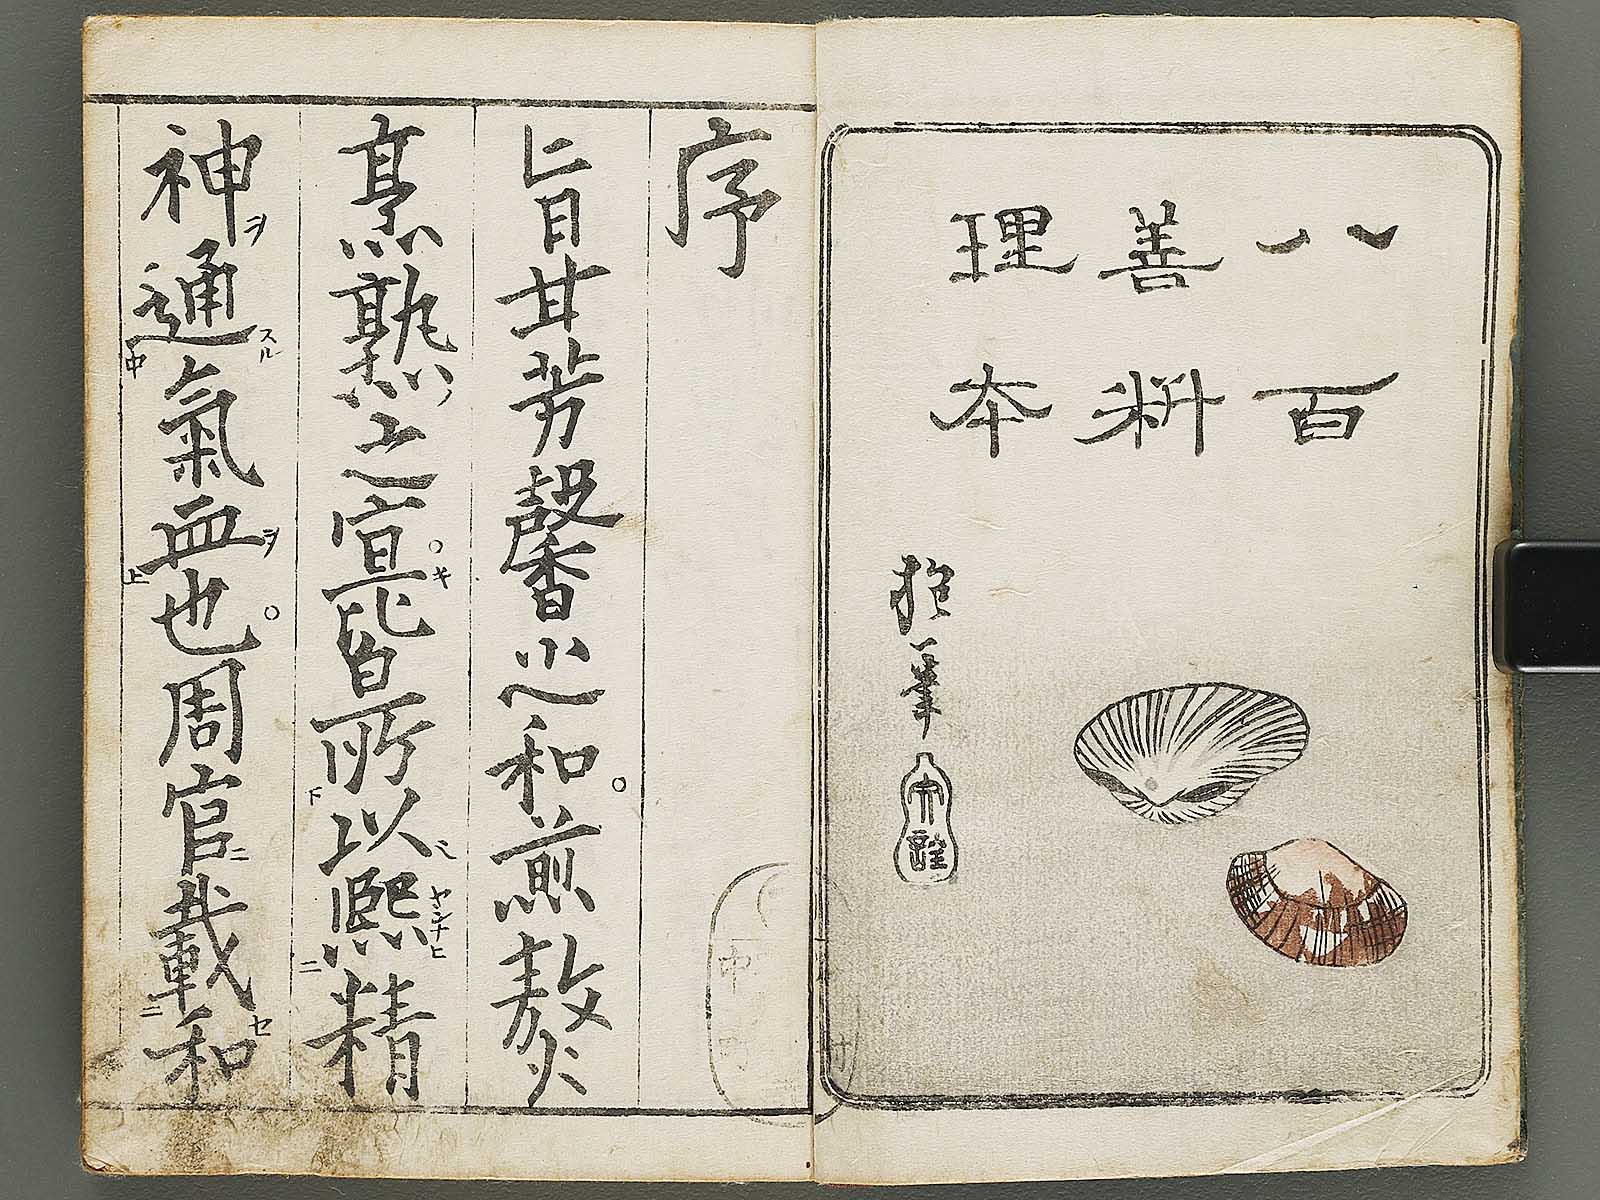 八百
善料
理本
抱一筆
序
旨甘芳馨之和煎熬
烹熟之宜皆所以熙精
神通氣血也周官載和